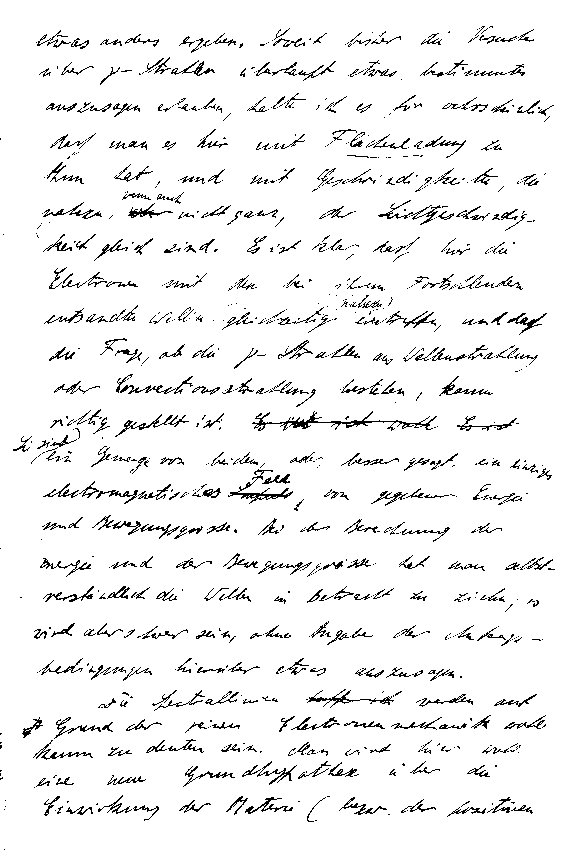 etwas anders ergeben. Soweit bisher die Versuche
über γ-Strahlen überhaupt etwas bestimmtes
auszusagen erlauben, halte ich es für wahrscheinlich,
daß man es hier mit Flächenladung zu
thun hat, und mit Geschwindigkeiten, die
nahezu, wenn auch nicht ganz, der Lichtgeschwindig-
keit gleich sind. Es ist klar, daß hier die
Electronen mit den bei ihrem Fortschreiten
entsandten Wellen gleichzeitig (nahezu!) eintreffen, und daß
die Frage, ob die γ-Strahlen aus Wellenstrahlung
oder Convectionsstrahlung bestehen, kaum
richtig gestellt ist. Es ist wohl Es ist
Sie sind ein Gemenge von beiden, oder besser gesagt, ein einziges
electromagnetisches Feld, von gegebener Energie
und Bewegungsgrösse. Bei der Berechnung der
Energie und der Bewegungsgrösse hat man selbst-
verständlich die Wellen in Betracht zu ziehen; es
wird aber schwer sein, ohne Angabe der Anfangs-
bedingungen hierüber etwas auszusagen.
Die Spectrallinien werden auf
Grund der reinen Electronenmechanik wohl
kaum zu deuten sein. Man wird hier wohl
eine neue Grundhypothese über die
Einwirkung der Materie (bezw. der positiven